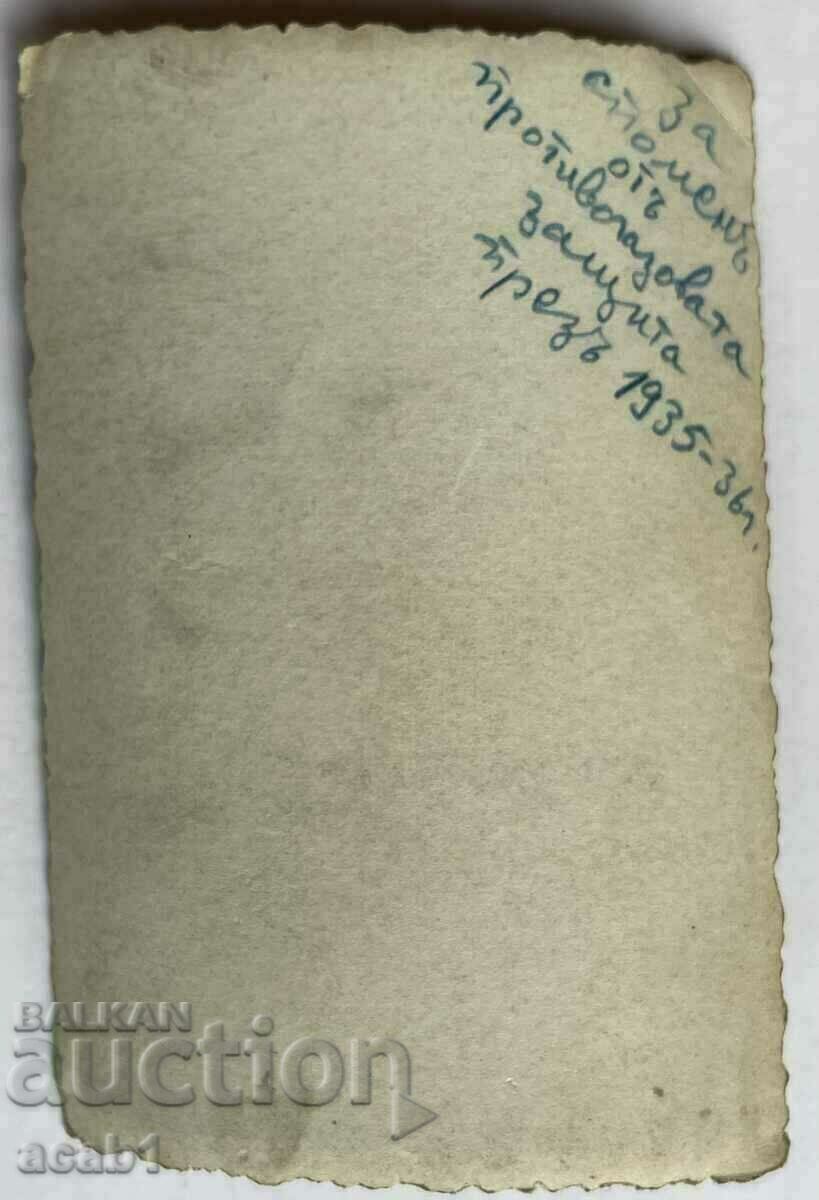 За
споменъ
отъ
противогазовата
защита
презъ 1935-36 г.
BALKAN
auction
acab1